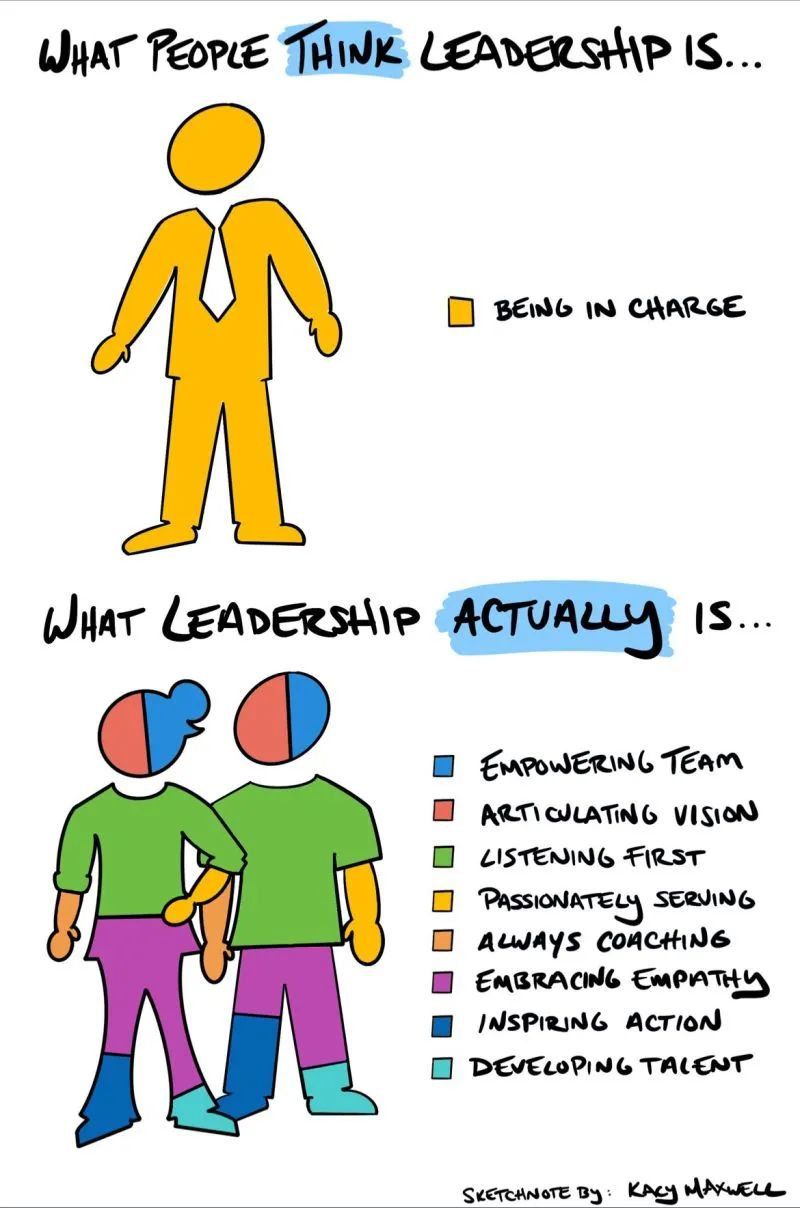 WHAT PEOPLE THINK LEADERSHIP IS...
BEING IN CHARGE
WHAT LEADERSHIP ACTUALLY IS...
EMPOWERING TEAM
ARTICULATING VISION
LISTENING FIRST
PASSIONATELY SERVING
ALWAYS COACHING
EMBRACING EMPATHY
INSPIRING ACTION
DEVELOPING TALENT
SKETCHNOTE BY: KACY MAXWELL